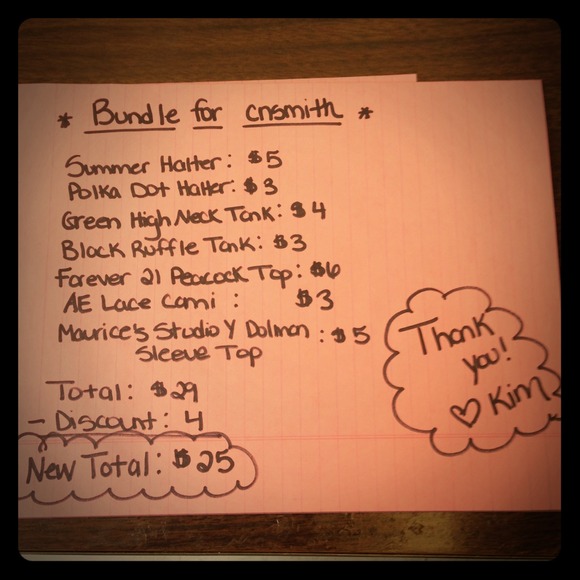 * Bundle for cnsmith *
Summer Halter: $5
Polka Dot Halter: $3
Green High Neck Tank: $4
Black Ruffle Tank: $3
Forever 21 Peacock Top: $6
AE Lace Cami : $3
Maurice's Studio Y Dolman : $5
Sleeve Top
Total: $29
- Discount: 4
New Total: $25
Thank
you!
♡ Kim